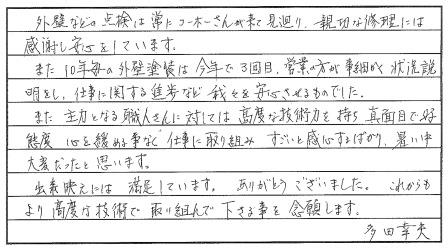 外壁などの点検は常にコーホーさんが来て見廻り、親切な修理には
感謝し安心をしています。
また10年毎の外壁塗装は今年で3回目、営業の方が事細かく状況説
明をし、仕事に関する進歩など我々を安心させるものでした。
また主力となる職人さんに対しては高度な技術力を持ち真面目で好
態度 心を緩める事なく仕事に取り組み すごいと感心するばかり、暑い中
大変だったと思います。
出来映えには 満足しています。 ありがとうございました。 これからも
より高度な技術で 取り組んで下さる事を念願します。
多田幸夫